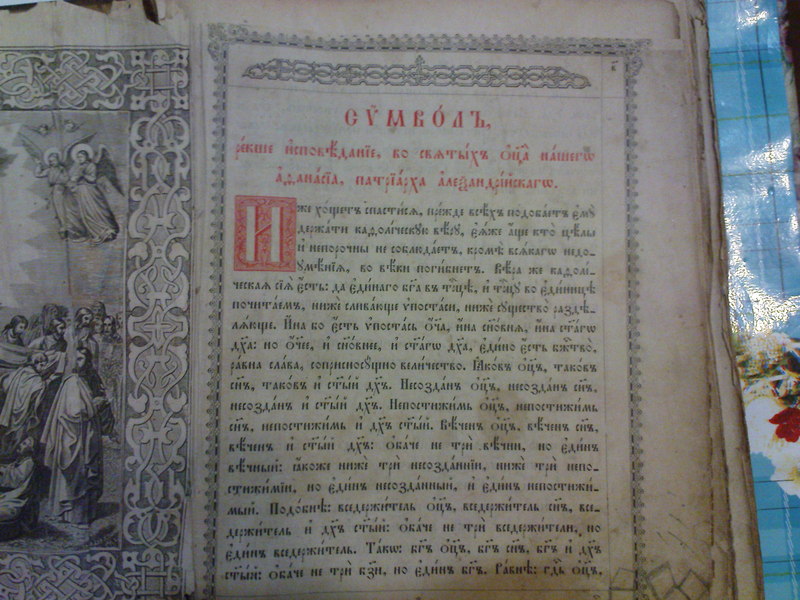 СѶМВО́ЛЪ,
ре́кше и҆сповѣ́данїе, во свѧты́хъ ѻ҆ц҃а̀ на́шегѡ
а҆ѳана́сїа, патрїа́рха а҆леѯандрі́йскагѡ.
И҆́же хо́щетъ спасти́сѧ, пре́жде всѣ́хъ подоба́етъ є҆мꙋ̀
держа́ти каѳоли́ческꙋю вѣ́рꙋ, є҆ѧ́же а҆́ще кто̀ цѣ́лы
и҆ непоро́чны не соблюда́етъ, кромѣ̀ всѧ́кагѡ недо-
ꙋмѣ́нїѧ, во вѣ́ки поги́бнетъ. Вѣ́ра же каѳоли́-
ческаѧ сїѧ̀ є҆́сть: да є҆ди́наго бг҃а въ трⷪ҇цѣ, и҆ трⷪ҇цꙋ во є҆ди́ницѣ
почита́емъ, нижѐ слива́юще ѵ҆поста̑си, нижѐ сꙋщество̀ раздѣ-
лѧ́юще. И҆́на бо є҆́сть ѵ҆поста́сь ѻ҆́ч҃а, и҆́на сн҃о́внѧ, и҆́на ст҃а́гѡ
дх҃а: но ѻ҆́ч҃ее, и҆ сн҃о́внее, и҆ ст҃а́гѡ дх҃а, є҆ди́но є҆́сть бжⷭ҇тво̀,
ра́вна сла́ва, соприсносꙋ́щно вели́чество. Ꙗ҆ко́въ ѻ҆ц҃ъ, тако́въ
сн҃ъ, тако́въ и҆ ст҃ы́й дх҃ъ. Несозда́нъ ѻ҆ц҃ъ, несозда́нъ сн҃ъ,
несозда́нъ и҆ ст҃ы́й дх҃ъ. Непостижи́мь ѻ҆ц҃ъ, непостижи́мь
сн҃ъ, непостижи́мь и҆ дх҃ъ ст҃ы́й. Вѣ́ченъ ѻ҆ц҃ъ, вѣ́ченъ сн҃ъ,
вѣ́ченъ и҆ ст҃ы́й дх҃ъ: ѻ҆ба́че не трѝ вѣ́чни, но є҆ди́нъ
вѣ́чный: ꙗ҆́коже нижѐ трѝ несозда́ннїи, нижѐ трѝ непо-
стижи́мїи, но є҆ди́нъ несозда́нный, и҆ є҆ди́нъ непостижи́-
мый. Подо́бнѣ: вседержи́тель ѻ҆ц҃ъ, вседержи́тель сн҃ъ, все-
держи́тель и҆ дх҃ъ ст҃ы́й: ѻ҆ба́че не трѝ вседержи́тели, но
є҆ди́нъ вседержи́тель. Та́кѡ: бг҃ъ ѻ҆ц҃ъ, бг҃ъ сн҃ъ, бг҃ъ и҆ дх҃ъ
ст҃ы́й: ѻ҆ба́че не трѝ бз҃и, но є҆ди́нъ бг҃ъ. Ра́внѣ: гдⷭ҇ь ѻ҆ц҃ъ,